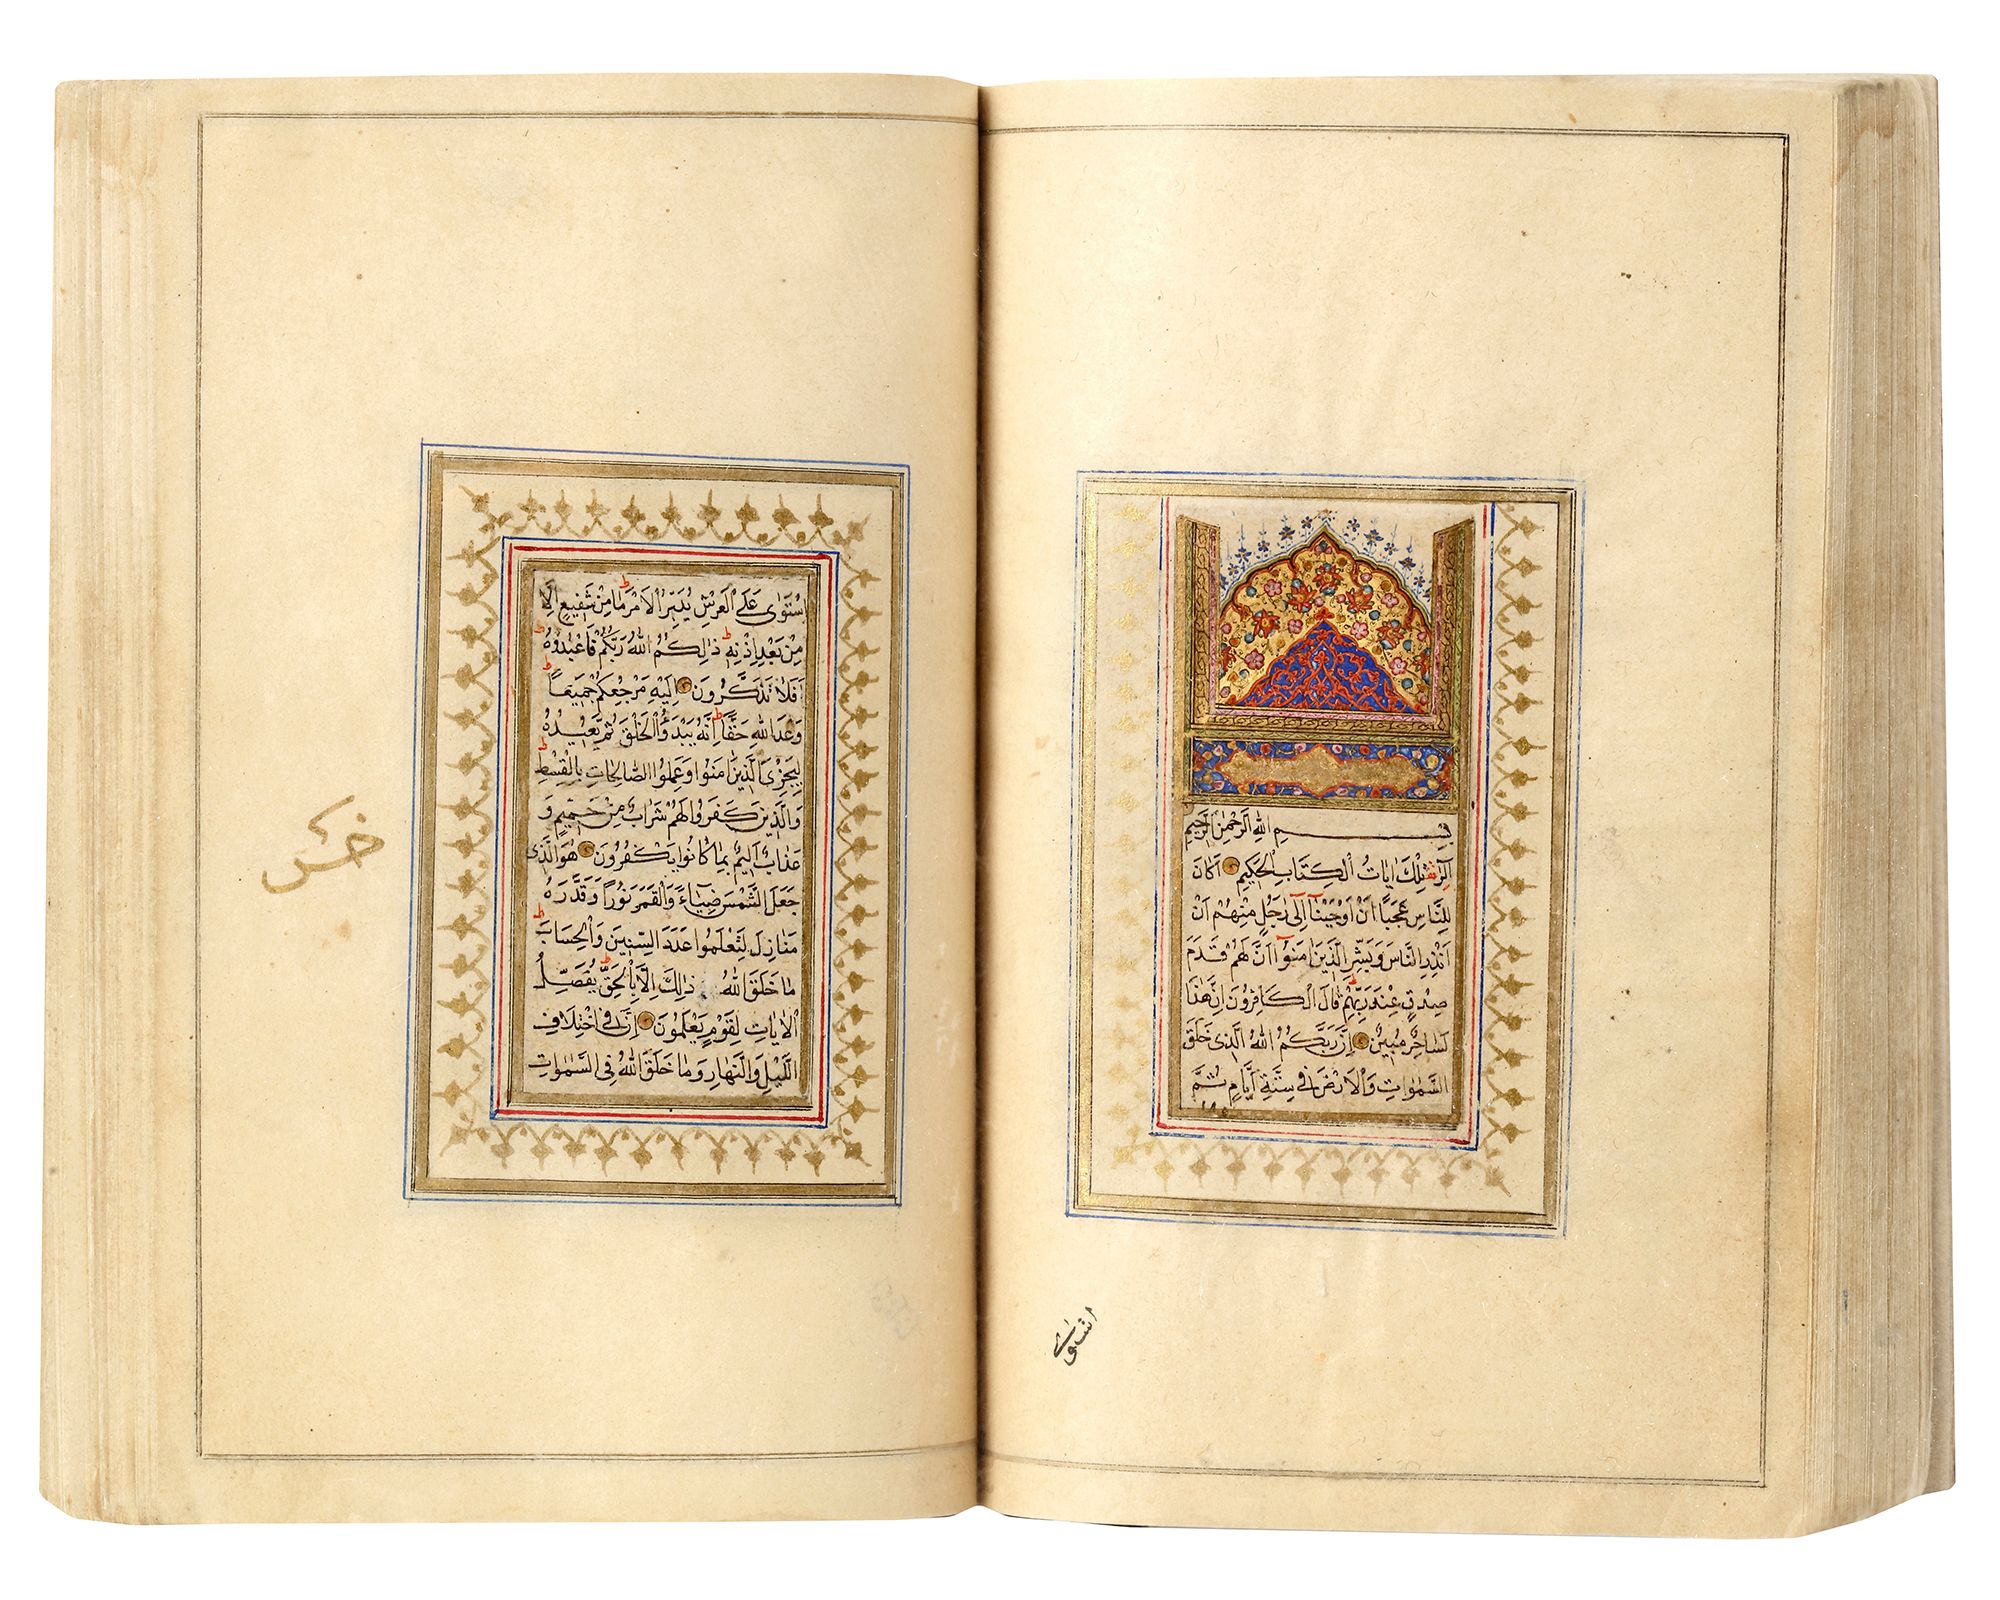 بِسْمِ اللهِ الرَّحْمٰنِ الرَّحِيمِ
الٓرٰ تِلْكَ اٰيَاتُ الْكِتَابِ الْحَكِيمِ اَكَانَ
لِلنَّاسِ عَجَبًا اَنْ اَوْحَيْنَٓا اِلٰى رَجُلٍ مِنْهُمْ اَنْ
اَنْذِرِ النَّاسَ وَبَشِّرِ الَّذِينَ اٰمَنُٓوا اَنَّ لَهُمْ قَدَمَ
صِدْقٍ عِنْدَ رَبِّهِمْ ط قَالَ الْكَافِرُونَ اِنَّ هٰذَا
لَسَاحِرٌ مُبِينٌ اِنَّ رَبَّكُمُ اللهُ الَّذِى خَلَقَ
السَّمٰوَاتِ وَالْاَرْضَ فِى سِتَّةِ اَيَّامٍ ثُمَّ
استوى
سْتَوٰى عَلَى الْعَرْشِ يُدَبِّرُ الْاَمْرَ ط مَا مِنْ شَفِيعٍ اِلَّا
مِنْ بَعْدِ اِذْنِهِ ط ذٰلِكُمُ اللهُ رَبُّكُمْ فَاعْبُدُوهُ ط
اَفَلَا تَذَكَّرُونَ اِلَيْهِ مَرْجِعُكُمْ جَمِيعًا ط
وَعْدَ اللهِ حَقًّا ط اِنَّهُ يَبْدَؤُا الْخَلْقَ ثُمَّ يُعِيدُهُ
لِيَجْزِىَ الَّذِينَ اٰمَنُوا وَعَمِلُوا الصَّالِحَاتِ بِالْقِسْطِ ط
وَالَّذِينَ كَفَرُوا لَهُمْ شَرَابٌ مِنْ حَمِيمٍ وَ
عَذَابٌ اَلِيمٌ بِمَا كَانُوا يَكْفُرُونَ هُوَ الَّذِى
جَعَلَ الشَّمْسَ ضِيَٓاءً وَالْقَمَرَ نُورًا وَقَدَّرَهُ
مَنَازِلَ لِتَعْلَمُوا عَدَدَ السِّنِينَ وَالْحِسَابَ ط
مَا خَلَقَ اللهُ ذٰلِكَ اِلَّا بِالْحَقِّ ط يُفَصِّلُ
الْاٰيَاتِ لِقَوْمٍ يَعْلَمُونَ اِنَّ فِى اخْتِلَافِ
اللَّيْلِ وَالنَّهَارِ وَمَا خَلَقَ اللهُ فِى السَّمٰوَاتِ